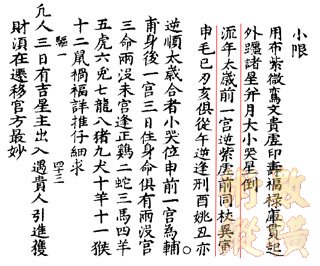 小限
用布紫微鸞文貴虛印壽福祿庫貫起
外躔諸星并月大小哭星倒
流年太歲前一宮逆紫虛前同杖異
申毛巳刃亥俱從午逆逢刑酉姚丑亦
逆順太歲合者小哭位申前一宮為輔。
甫身後一宮三日住身命俱有兩沒宮
三命兩沒未宮逢正鷄二蛇三馬四羊
五虎六兎七龍八猪九犬十羊十一猴
十二鼠禍福詳推仔細求
驅一 四十三
凢人三日有吉星主出入遇貴人引進獲
財須在遷移官方最妙